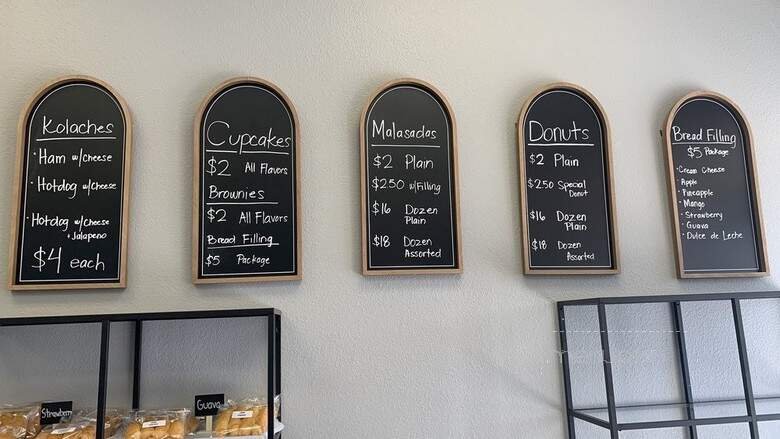 Kolaches
· Ham w/Cheese
· Hotdog w/Cheese
· Hotdog w/Cheese
+Jalapeno
$4 each
Cupcakes
$2 All Flavors
Brownies
$2 All Flavors
Bread Filling
$5 Package
Malasadas
$2 Plain
$2.50 w/Filling
$16 Dozen
Plain
$18 Dozen
Assorted
Donuts
$2 Plain
$2.50 Special
Donut
$16 Dozen
Plain
$18 Dozen
Assorted
Bread Filling
$5 Package
· Cream Cheese
· Apple
· Pineapple
· Mango
· Strawberry
· Guava
· Dulce de Leche
Strawberry
Guava